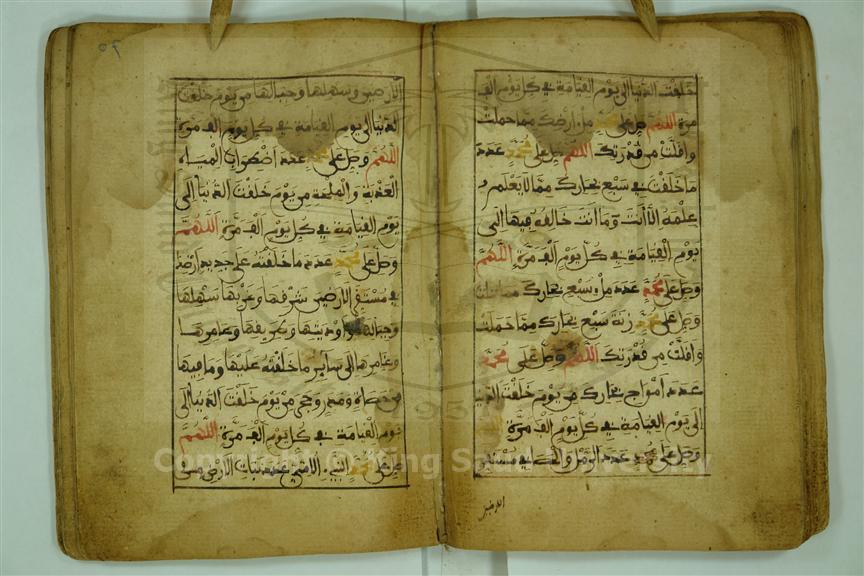 خلقت الدنيا إلى يوم القيامة في كل يوم الف
مرة اللهم صل على محمد ملء أرضك مما حملت
وأقلت من قدرتك اللهم صل على محمد عدد
ما خلقت في سبع بحارك مما لا يعلم
علمه إلا أنت وما أنت خالقه فيها إلى
يوم القيامة في كل يوم ألف مرة اللهم
وصل على محمد عدد ملء سبع بحارك مما حملت
وصل على محمد زنة سبع بحارك مما حملت
وأقلت من قدرتك اللهم وصل على محمد
عدد أمواج بحارك من يوم خلقت الدنيا
إلى يوم القيامة في كل يوم الف مرة اللهم
وصل على محمد عدد الرمل والحصى في مستقر
الارضين
الأرضين وسهلها وجبالها من يوم خلقت
الدنيا إلى يوم القيامة في كل يوم الف مرة
اللهم وصل على محمد عدد اضطراب المياه
العذبة والملحة من يوم خلقت الدنيا إلى
يوم القيامة في كل يوم ألف مرة اللهم
وصل على محمد عدد ما خلقته على جديد أرضك
في مستقر الأرضين شرقها وغربها سهلها
وجبالها وأوديتها وطريقها وعامرها
وغامرها إلى سائر ما خلقته عليها وما فيها
من حصاة ومدر وحجر من يوم خلقت الدنيا إلى
يوم القيامة في كل يوم ألف مرة اللهم
صل على محمد النبي الأمي عدد نبات الأرض من
Copyright © King Saud University